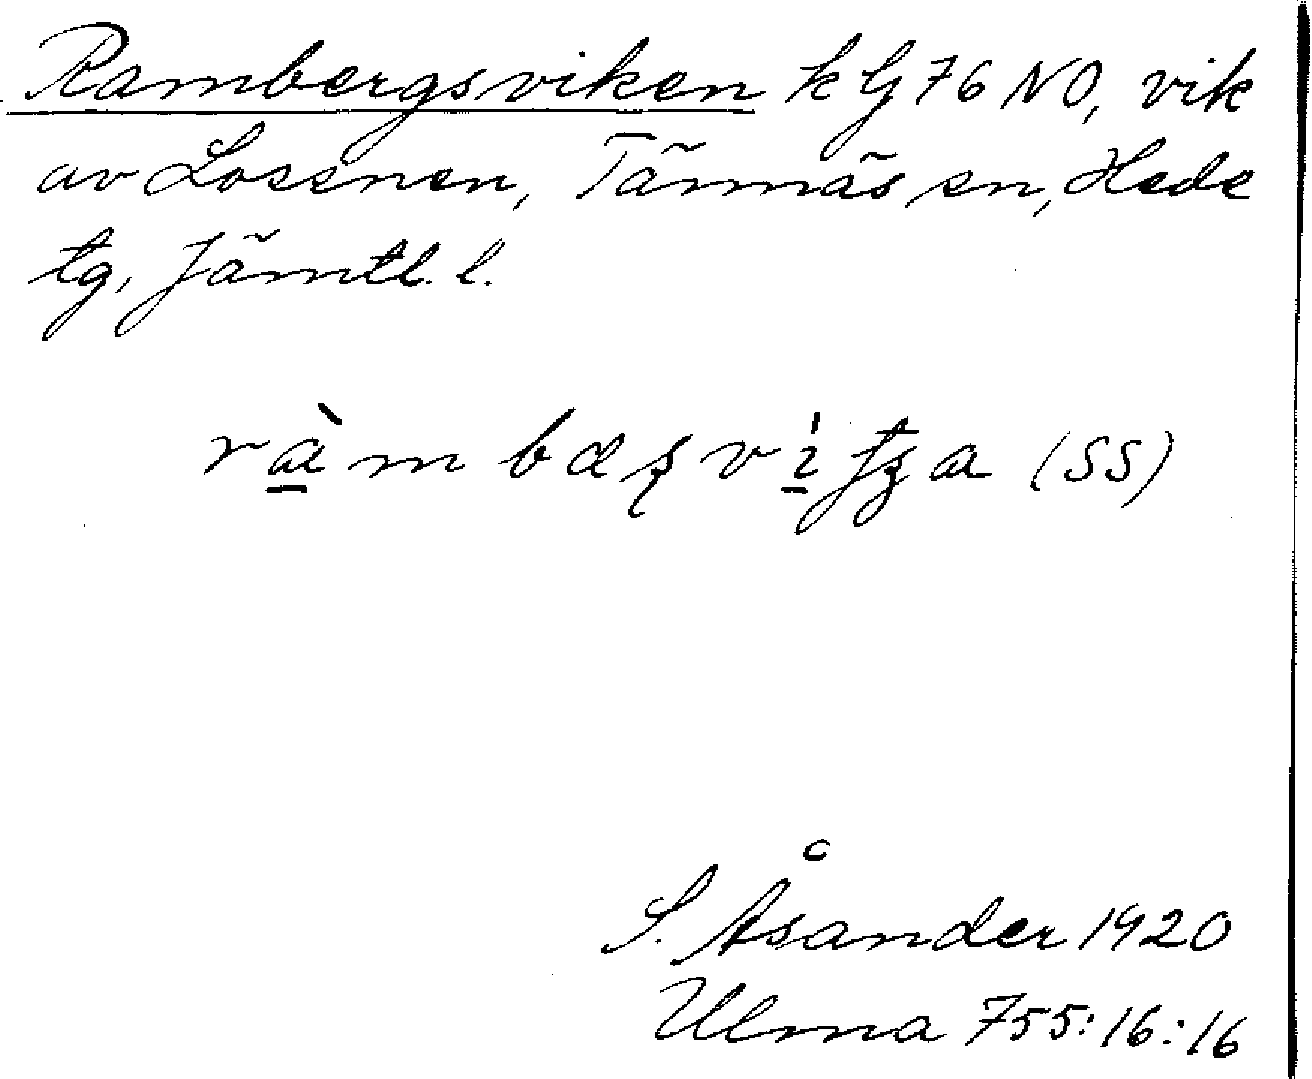 Rambergsviken k G 76 NO, vik
av Lossnen, Tännäs sn, Hede
tg, Jämtl. l.
(SS)
S. Åsander 1920
Ulma 755:16:16